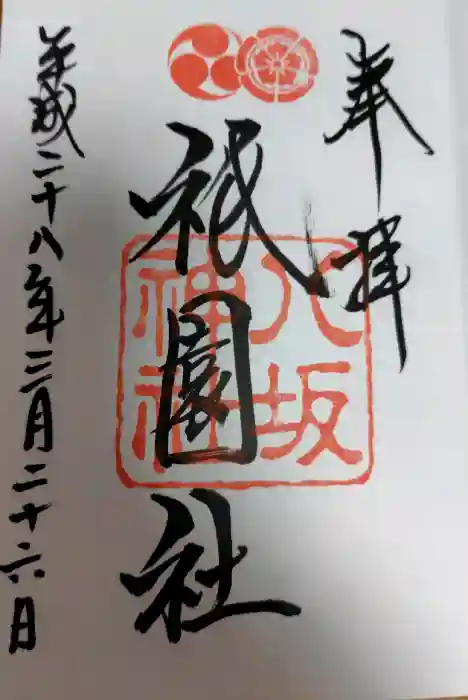 奉拝
八坂
神社
祇園社
平成二十八年三月二十六日